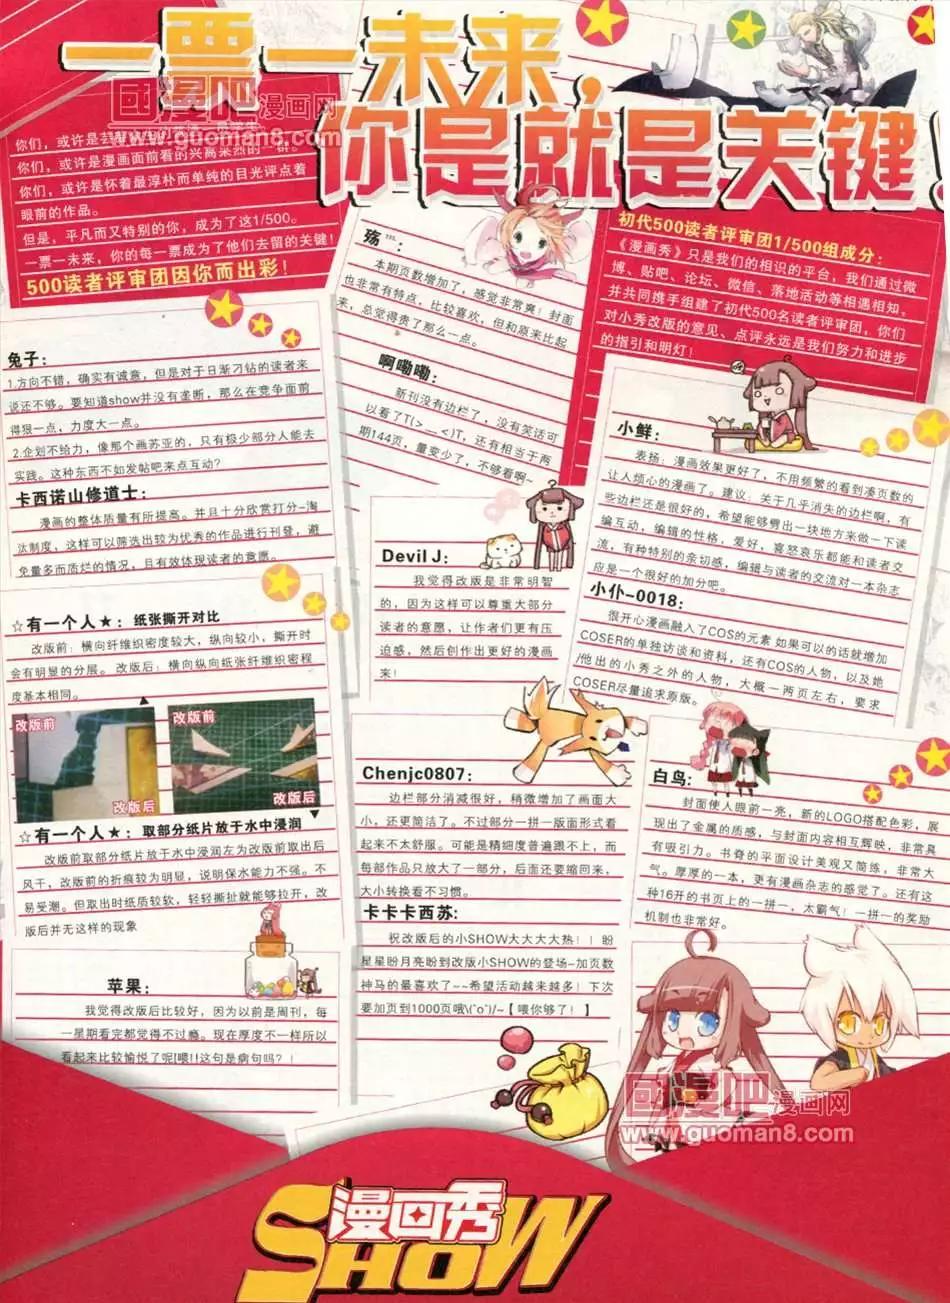 一票一未来，
你是就是关键！
國漫吧漫画网
www.guoman8.com
你们，或许是
你们，或许是漫画面前看的兴高采烈的一群。
你们，或许是怀着最淳朴而单纯的目光评点着
眼前的作品。
但是，平凡而又特别的你，成为了这1/500。
一票一未来，你的每一票成为了他们去留的关键！
500读者评审团因你而出彩！
兔子：
1.方向不错，确实有诚意，但是对于日渐刁钻的读者来
说还不够。要知道show并没有垄断，那么在竞争面前
得狠一点，力度大一点。
2.企划不给力，像那个画苏亚的，只有极少部分人能去
实践。这种东西不如发帖吧来点互动？
卡西诺山修道士：
漫画的整体质量有所提高。并且十分欣赏打分-淘
汰制度，这样可以筛选出较为优秀的作品进行刊登，避
免量多而质烂的情况，且有效体现读者的意愿。
☆有一个人★：纸张撕开对比
改版前：横向纤维织密度较大，纵向较小，撕开时
会有明显的分层。改版后：横向纵向纸张纤维织密程
度基本相同。
改版前
改版后
改版前
改版后
☆有一个人★：取部分纸片放于水中浸润
改版前取部分纸片放于水中浸润左为改版前取出后
风干，改版前的折痕较为明显，说明保水能力不强。不
易受潮。但取出时纸质较软，轻轻撕扯就能够拉开，改
版后并无这样的现象
苹果：
我觉得改版后比较好，因为以前是周刊，每
一星期看完都觉得不过瘾。现在厚度不一样所以
看起来比较愉悦了呢[喂!!这句是病句吗？！
殇'''：
本期页数增加了，感觉非常爽！封面
也非常有特点，比较喜欢，但和原来比起
来，总觉得贵了那么一点。
啊嘞嘞：
新刊没有边栏了，没有笑话可
以看了T(>﹏<)T，还有相当于两
期144页，量变少了，不够看啊~
Devil J：
我觉得改版是非常明智
的，因为这样可以尊重大部分
读者的意愿，让作者们更有压
迫感，然后创作出更好的漫画
来！
Chenjc0807：
边栏部分消减很好，稍微增加了画面大
小，还更简洁了。不过部分一拼一版面形式看
起来不太舒服。可能是精细度普遍跟不上，而
每部作品只放大了一部分，后面还要缩回来，
大小转换看不习惯。
卡卡卡西苏：
祝改版后的小SHOW大大大大热！｜盼
星星盼月亮盼到改版小SHOW的登场~加页数
神马的最喜欢了~~希望活动越来越多！下次
要加页到1000页哦\(ˆoˆ)/~【喂你够了！】
初代500读者评审团1/500组成分：
《漫画秀》只是我们的相识的平台，我们通过微
博、贴吧、论坛、微信、落地活动等相遇相知。
并共同携手组建了初代500名读者评审团，你们
对小秀改版的意见、点评永远是我们努力和进步
的指引和明灯！
小鲜：
表扬：漫画效果更好了，不用频繁的看到凑页数的
让人烦心的漫画了。建议：关于几乎消失的边栏啊，有
些边栏还是很好的，希望能够劈出一块地方来做一下读
编互动，编辑的性格，爱好，喜怒哀乐都能和读者交
流，有种特别的亲切感，编辑与读者的交流对一本杂志
应是一个很好的加分吧。
小仆-0018：
很开心漫画融入了COS的元素 如果可以的话就增加
COSER的单独访谈和资料，还有COS的人物，以及她
/他出的小秀之外的人物，大概一两页左右，要求
COSER尽量追求原版。
白鸟：
封面使人眼前一亮，新的LOGO搭配色彩，展
现出了金属的质感，与封面内容相互辉映，非常具
有吸引力。书脊的平面设计美观又简练，非常大
气。厚厚的一本，更有漫画杂志的感觉了。还有这
种16开的书页上的一拼一，太霸气！一拼一的奖励
机制也非常好。
國漫吧漫画网
www.guoman8.com
漫画秀
SHOW